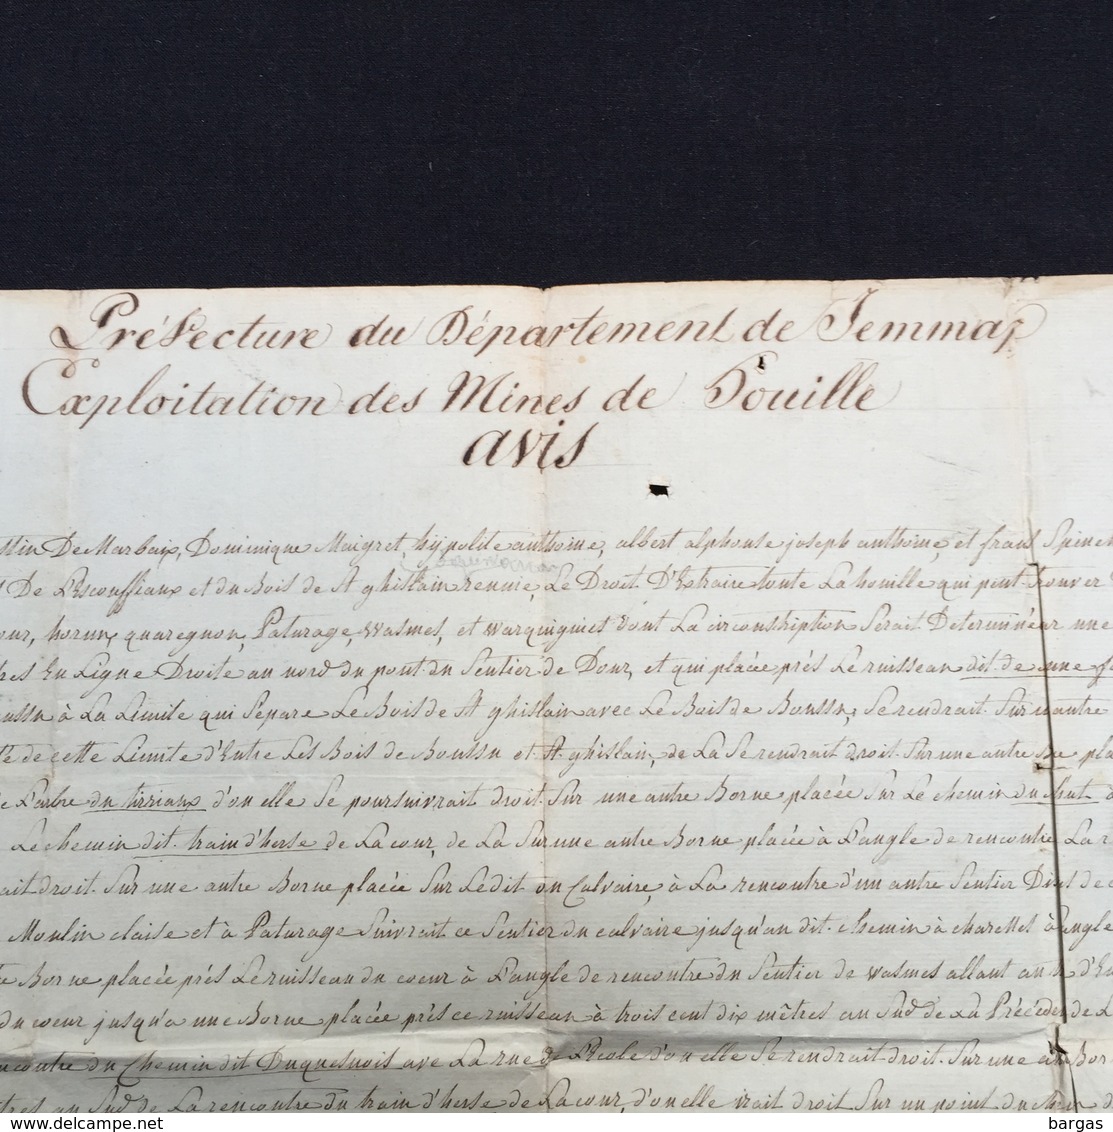 Préfecture du Département de Jemmap
Exploitation des Mines de houille
avis
De Marbaix, Dominique Maigret, hypolite anthoine, albert alphonse joseph anthoine, et frans Spinet
De L'Escouffiaux et du Bois de St ghislain reunie, Le Droit D'Extraire toute La houille qui peut trouver
hornu, quaregnon, Paturage, Wasmes, et warquignies dont La circonskription Serait Determinéar une
En Ligne Droite au nord du pont du Sentier de Dour, et qui placée prés Le ruisseau dit de une
Boussu à La Limite qui Separe Le Bois de St ghislain avec Le Bois de Boussu, Se rendrait Sur un autre
de cette Limite d'Entre Les Bois de Boussu et St ghislain, de La Se rendrait droit Sur une autre pla
L'arbre du tirriaux d'ou elle Se poursuivrait droit Sur une autre Borne placée Sur Le chemin du haut
Le chemin dit train d'herse de La cour, de La Sur une autre Borne placée à L'angle de rencontre La r
ait droit Sur une autre Borne placée Sur Ledit au Calvaire, à La rencontre d'un autre Sentier
Moulin claise et à Paturage Suivrait ce Sentier du calvaire jusqu'au dit Chemin à charettes à angle
Borne placée prés Le ruisseau du coeur à L'angle de rencontre du Sentier de wasmes allant au
du coeur jusqu'a une Borne placée prés ce ruisseau à trois cent dix mêtres au Sud de La Précéden de L
ncontre du Chemin dit Duquesnois avec La rue de L'Ecole d'ou elle Se rendrait droit Sur une Bor
tres au Sud de La rencontre du train d'herse de La cour, d'ou elle irait droit Sur un point du
delcampe.net
bargas